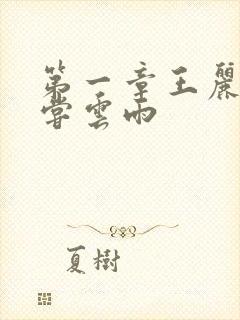 第一章王麗
嘗雲雨
夏樹